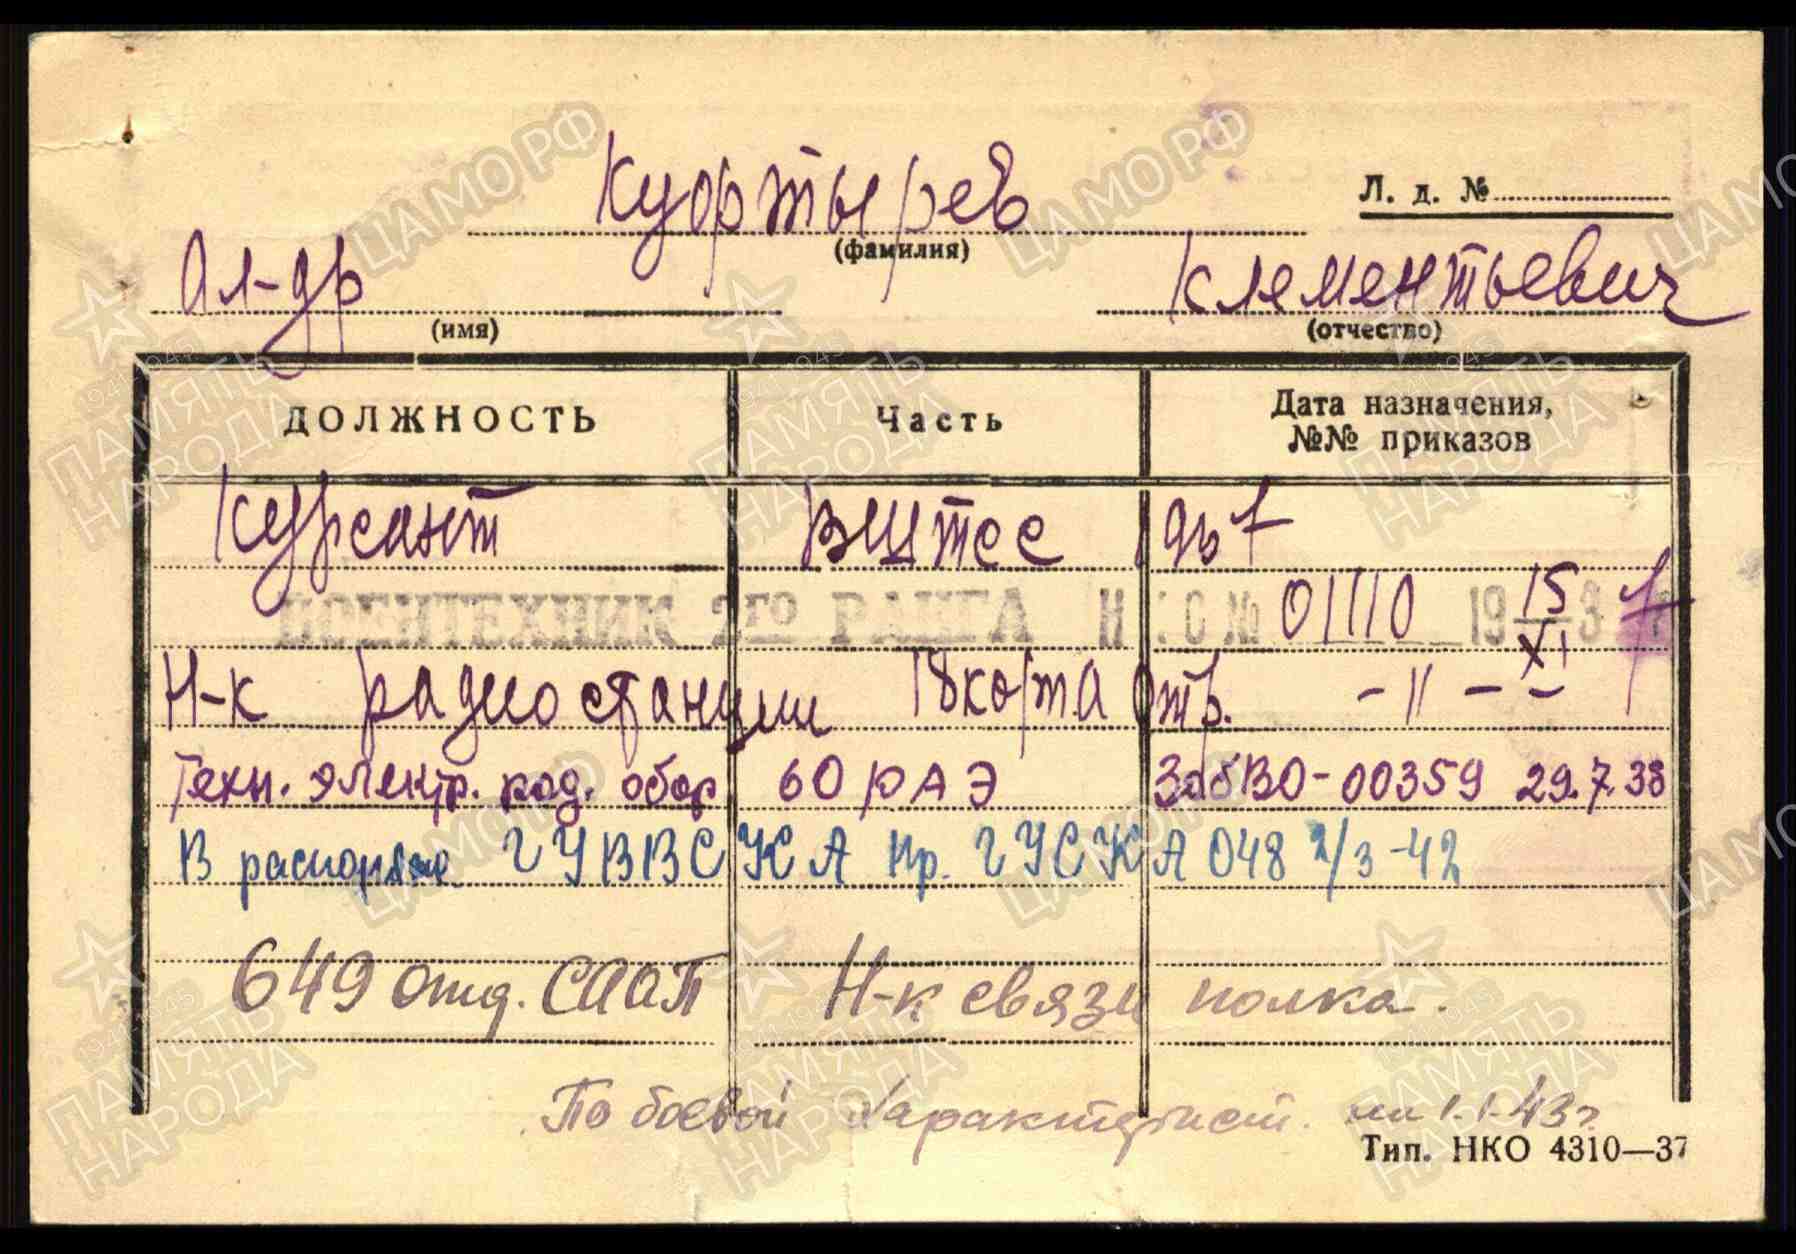 Куортырев
Л. д. №
(фамилия)
Ал-др
Клементьевич
(имя)
(отчество)
ДОЛЖНОСТЬ
Часть
Дата назначения,
№№ приказов
Курсант
ВШТСС
ВОЕНТЕХНИК 2ГО РАНГА НКО № 01110 19 15/XI 37
Н-к радиостанции 18 корп а отр. - 11 - -
Техн. электр. рад. обор 60 РАЭ ЗабВО-00359 29.7.38
В распоряж ГУВВСКА Пр. ГУСКА 048 2/3-42
649 отд. СААП Н-к связи полка.
По боевой характерист. на 1.1.43г.
Тип. НКО 4310—37
ЦАМО РФ
ПАМЯТЬ НАРОДА
1941-1945